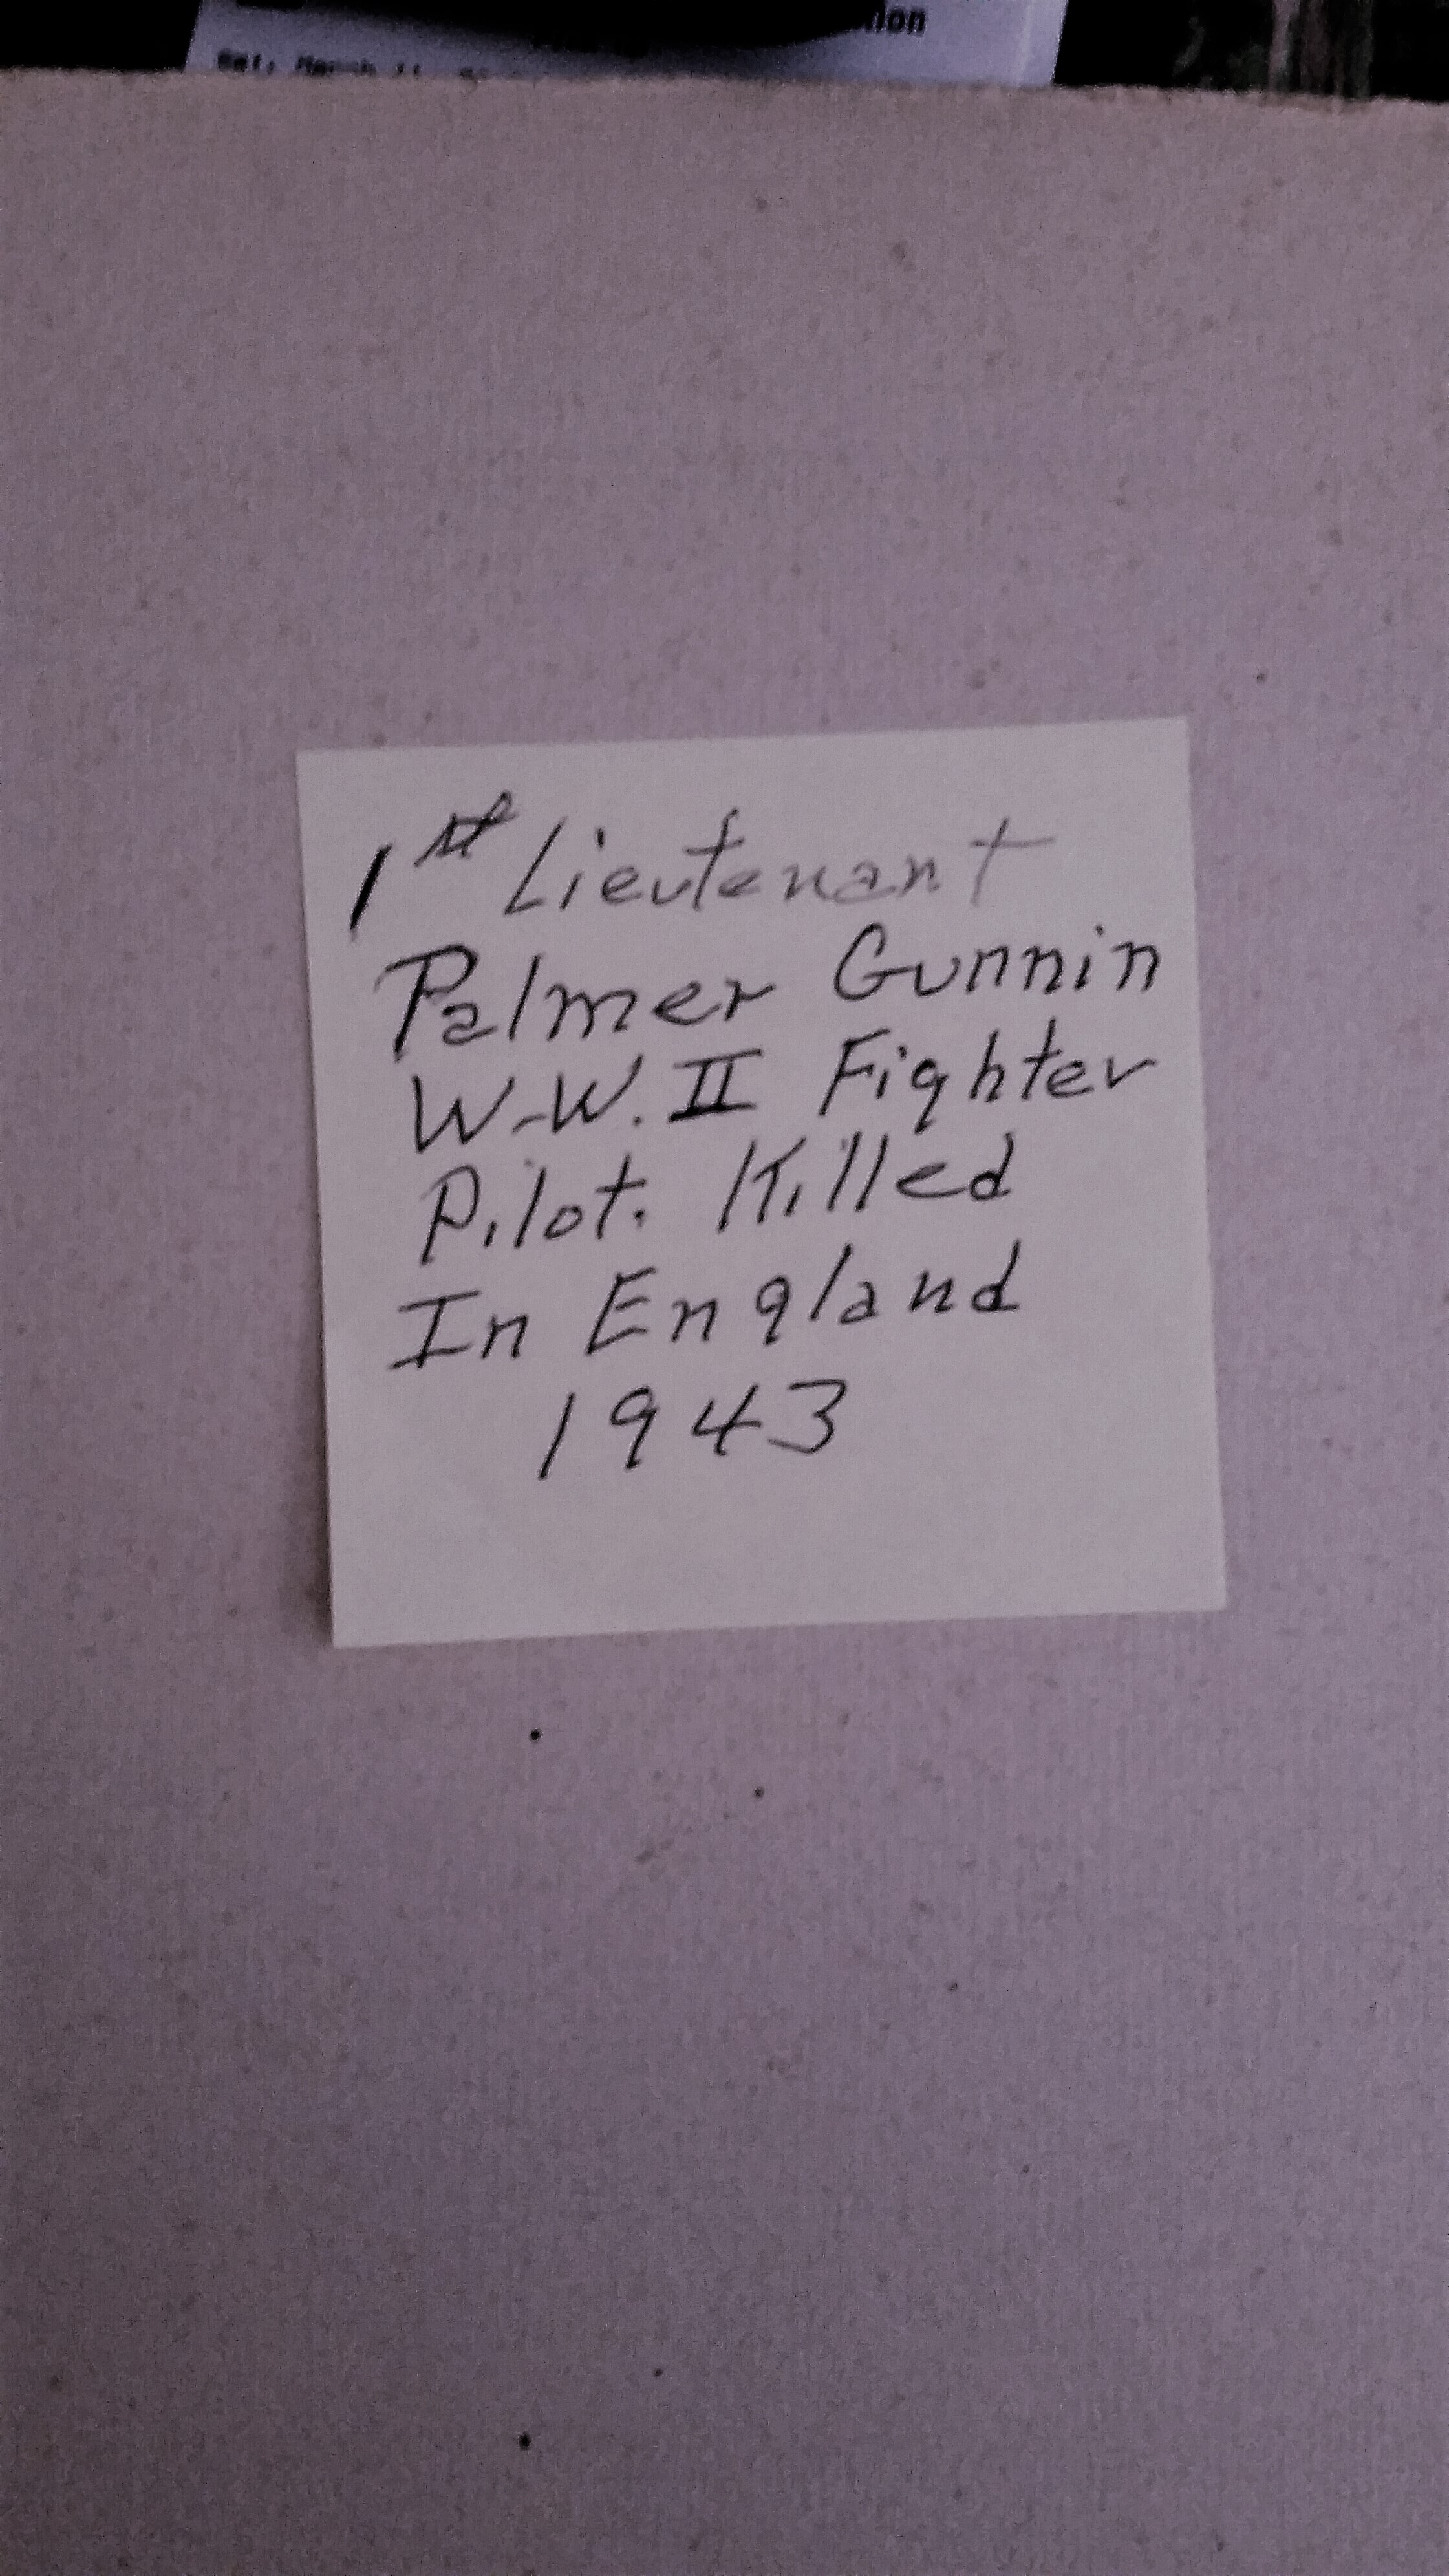 1st Lieutenant
Palmer Gunnin
W.W. II Fighter
Pilot. Killed
In England
1943